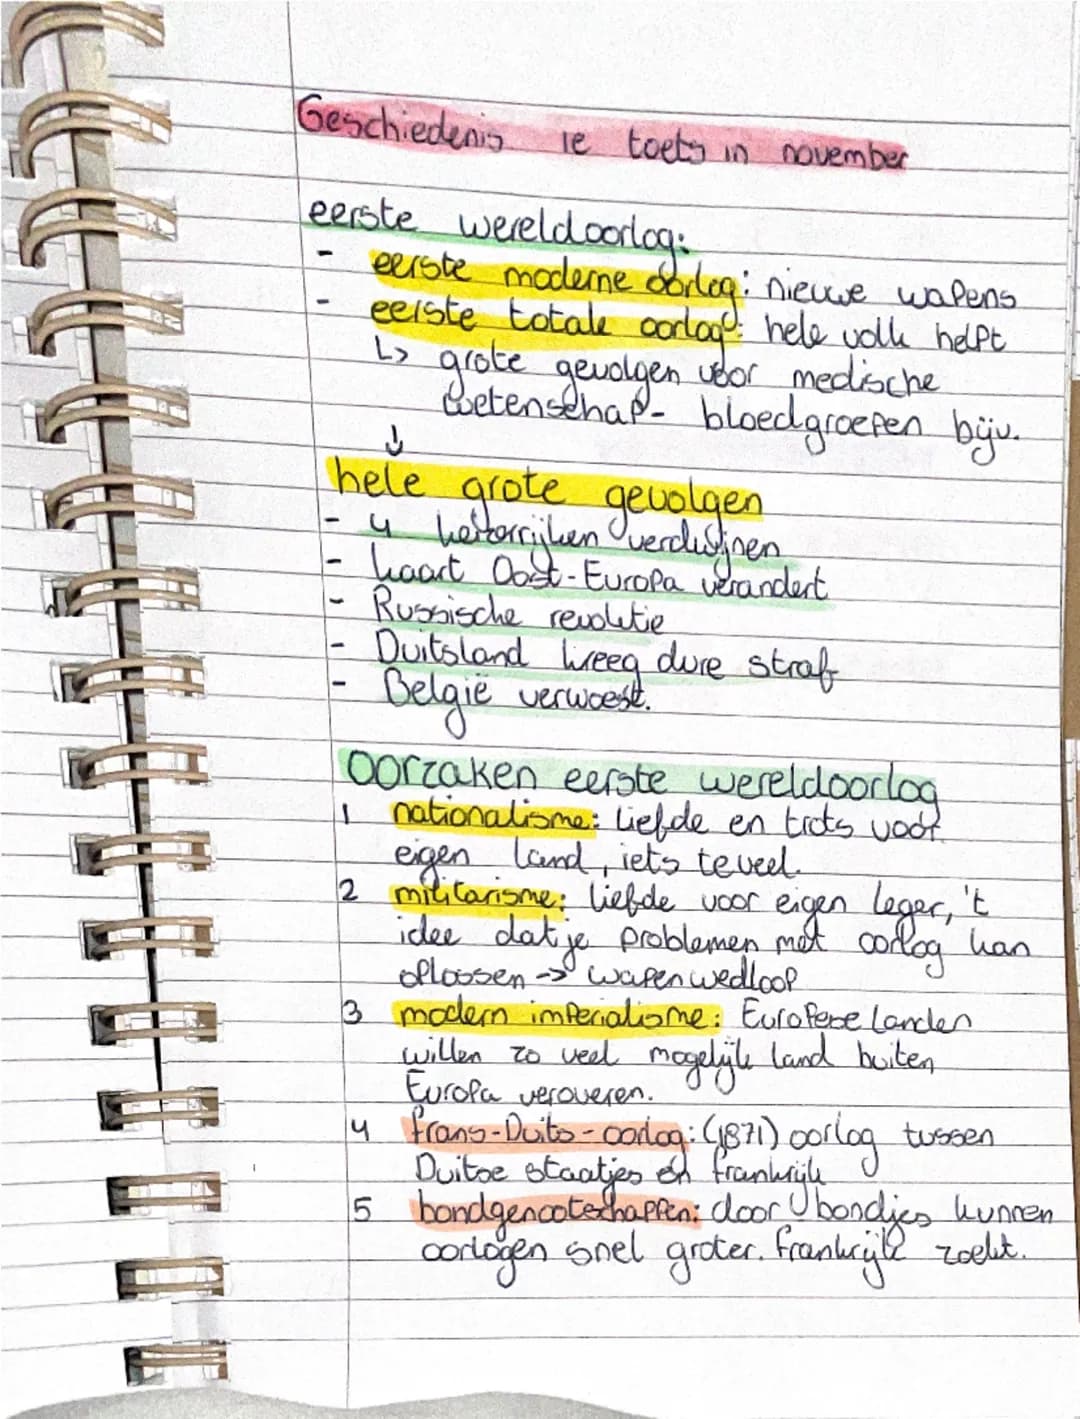 Geschiedenis 1e toets in november
eerste wereldoorlog:
- eerste moderne oorlog: nieuwe wapens
- eerste totale oorlog: hele volk helpt
↳ grote gevolgen voor medische
wetenschap - bloedgroepen bijv.
↓
hele grote gevolgen
- 4 keizerrijken verdwijnen
- kaart Oost-Europa verandert
- Russische revolutie
- Duitsland kreeg dure straf
- België verwoest.
oorzaken eerste wereldoorlog
1 nationalisme: liefde en trots voor
eigen land, iets te veel.
2 militarisme: liefde voor eigen leger, 't
idee dat je problemen met oorlog kan
oplossen -> wapenwedloop
3 modern imperialisme: Europese landen
willen zo veel mogelijk land buiten
Europa veroveren.
4 frans-Duits-oorlog: (1871) oorlog tussen
Duitse staatjes en frankrijk
5 bondgenootschappen: door bondjes kunnen
oorlogen snel groter. frankrijk zoekt.